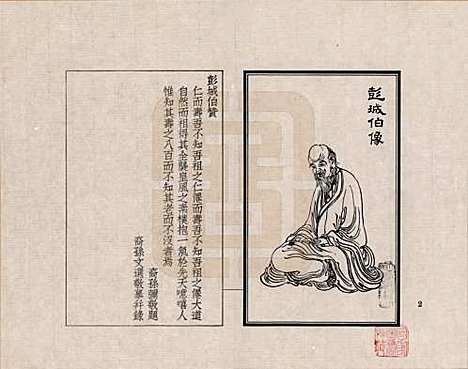 彭城伯像
2
彭城伯贊
仁而壽吾不知吾祖之仁僊而壽吾不知吾祖之僊大道
自然而祖得其全龔皇風之素樸抱一氣於先天噫嘻人
惟知其壽之八百而不知其老而不沒者焉
裔孫彌敬題
裔孫文選敬摹并錄